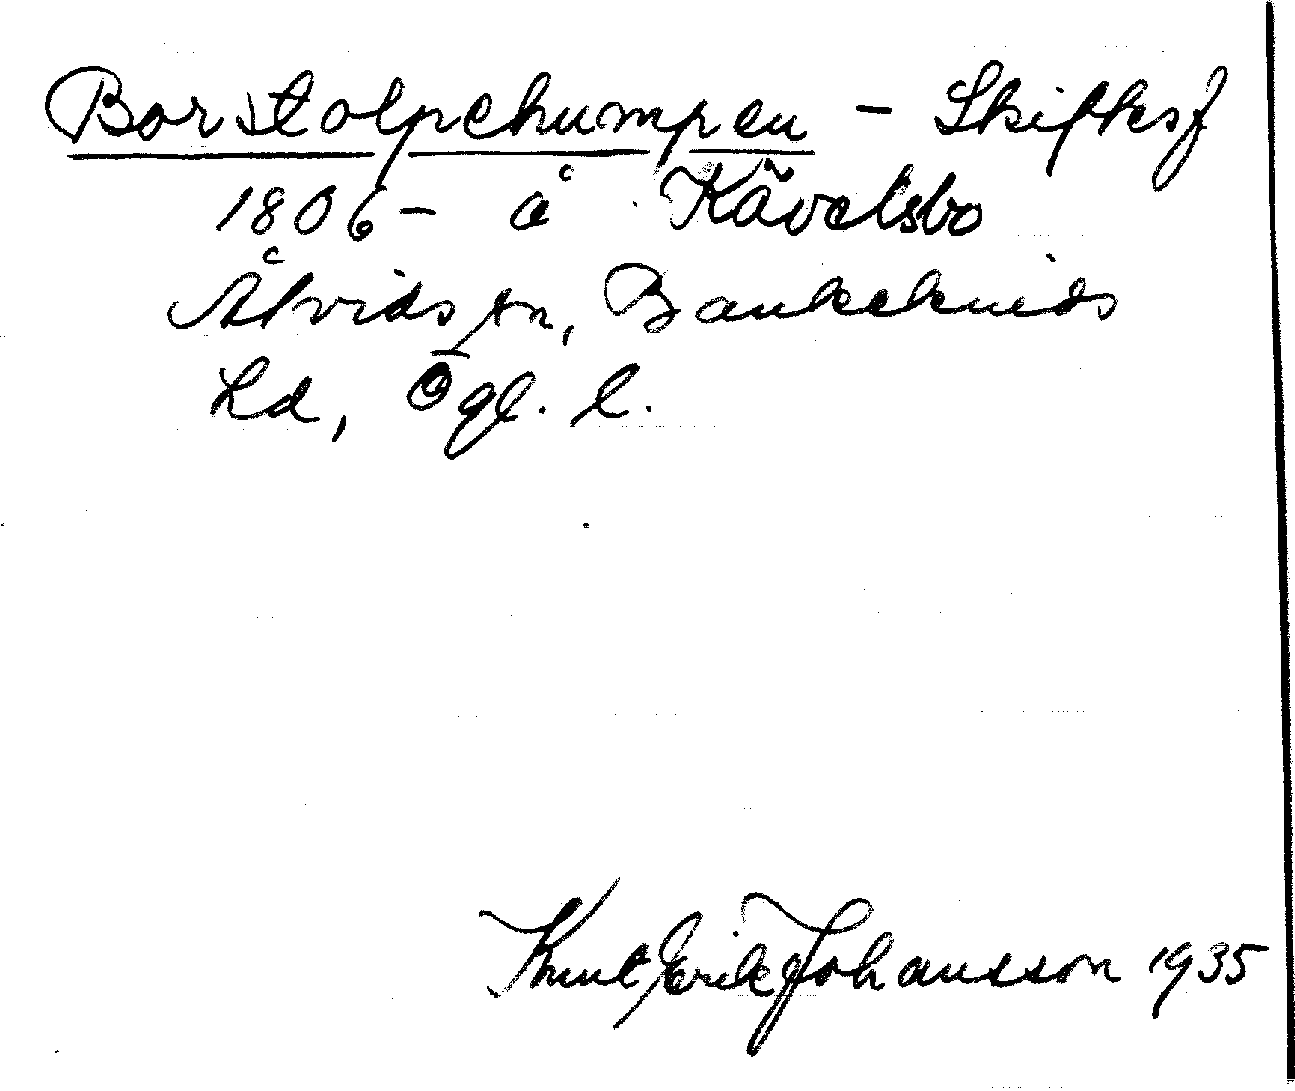 Borstolpehumpen - Skiftksf
1806 - å Kävelsbo
Åtvids sn, Bankekinds
hd, Ögl. l.
Knut Erik Johansson 1935